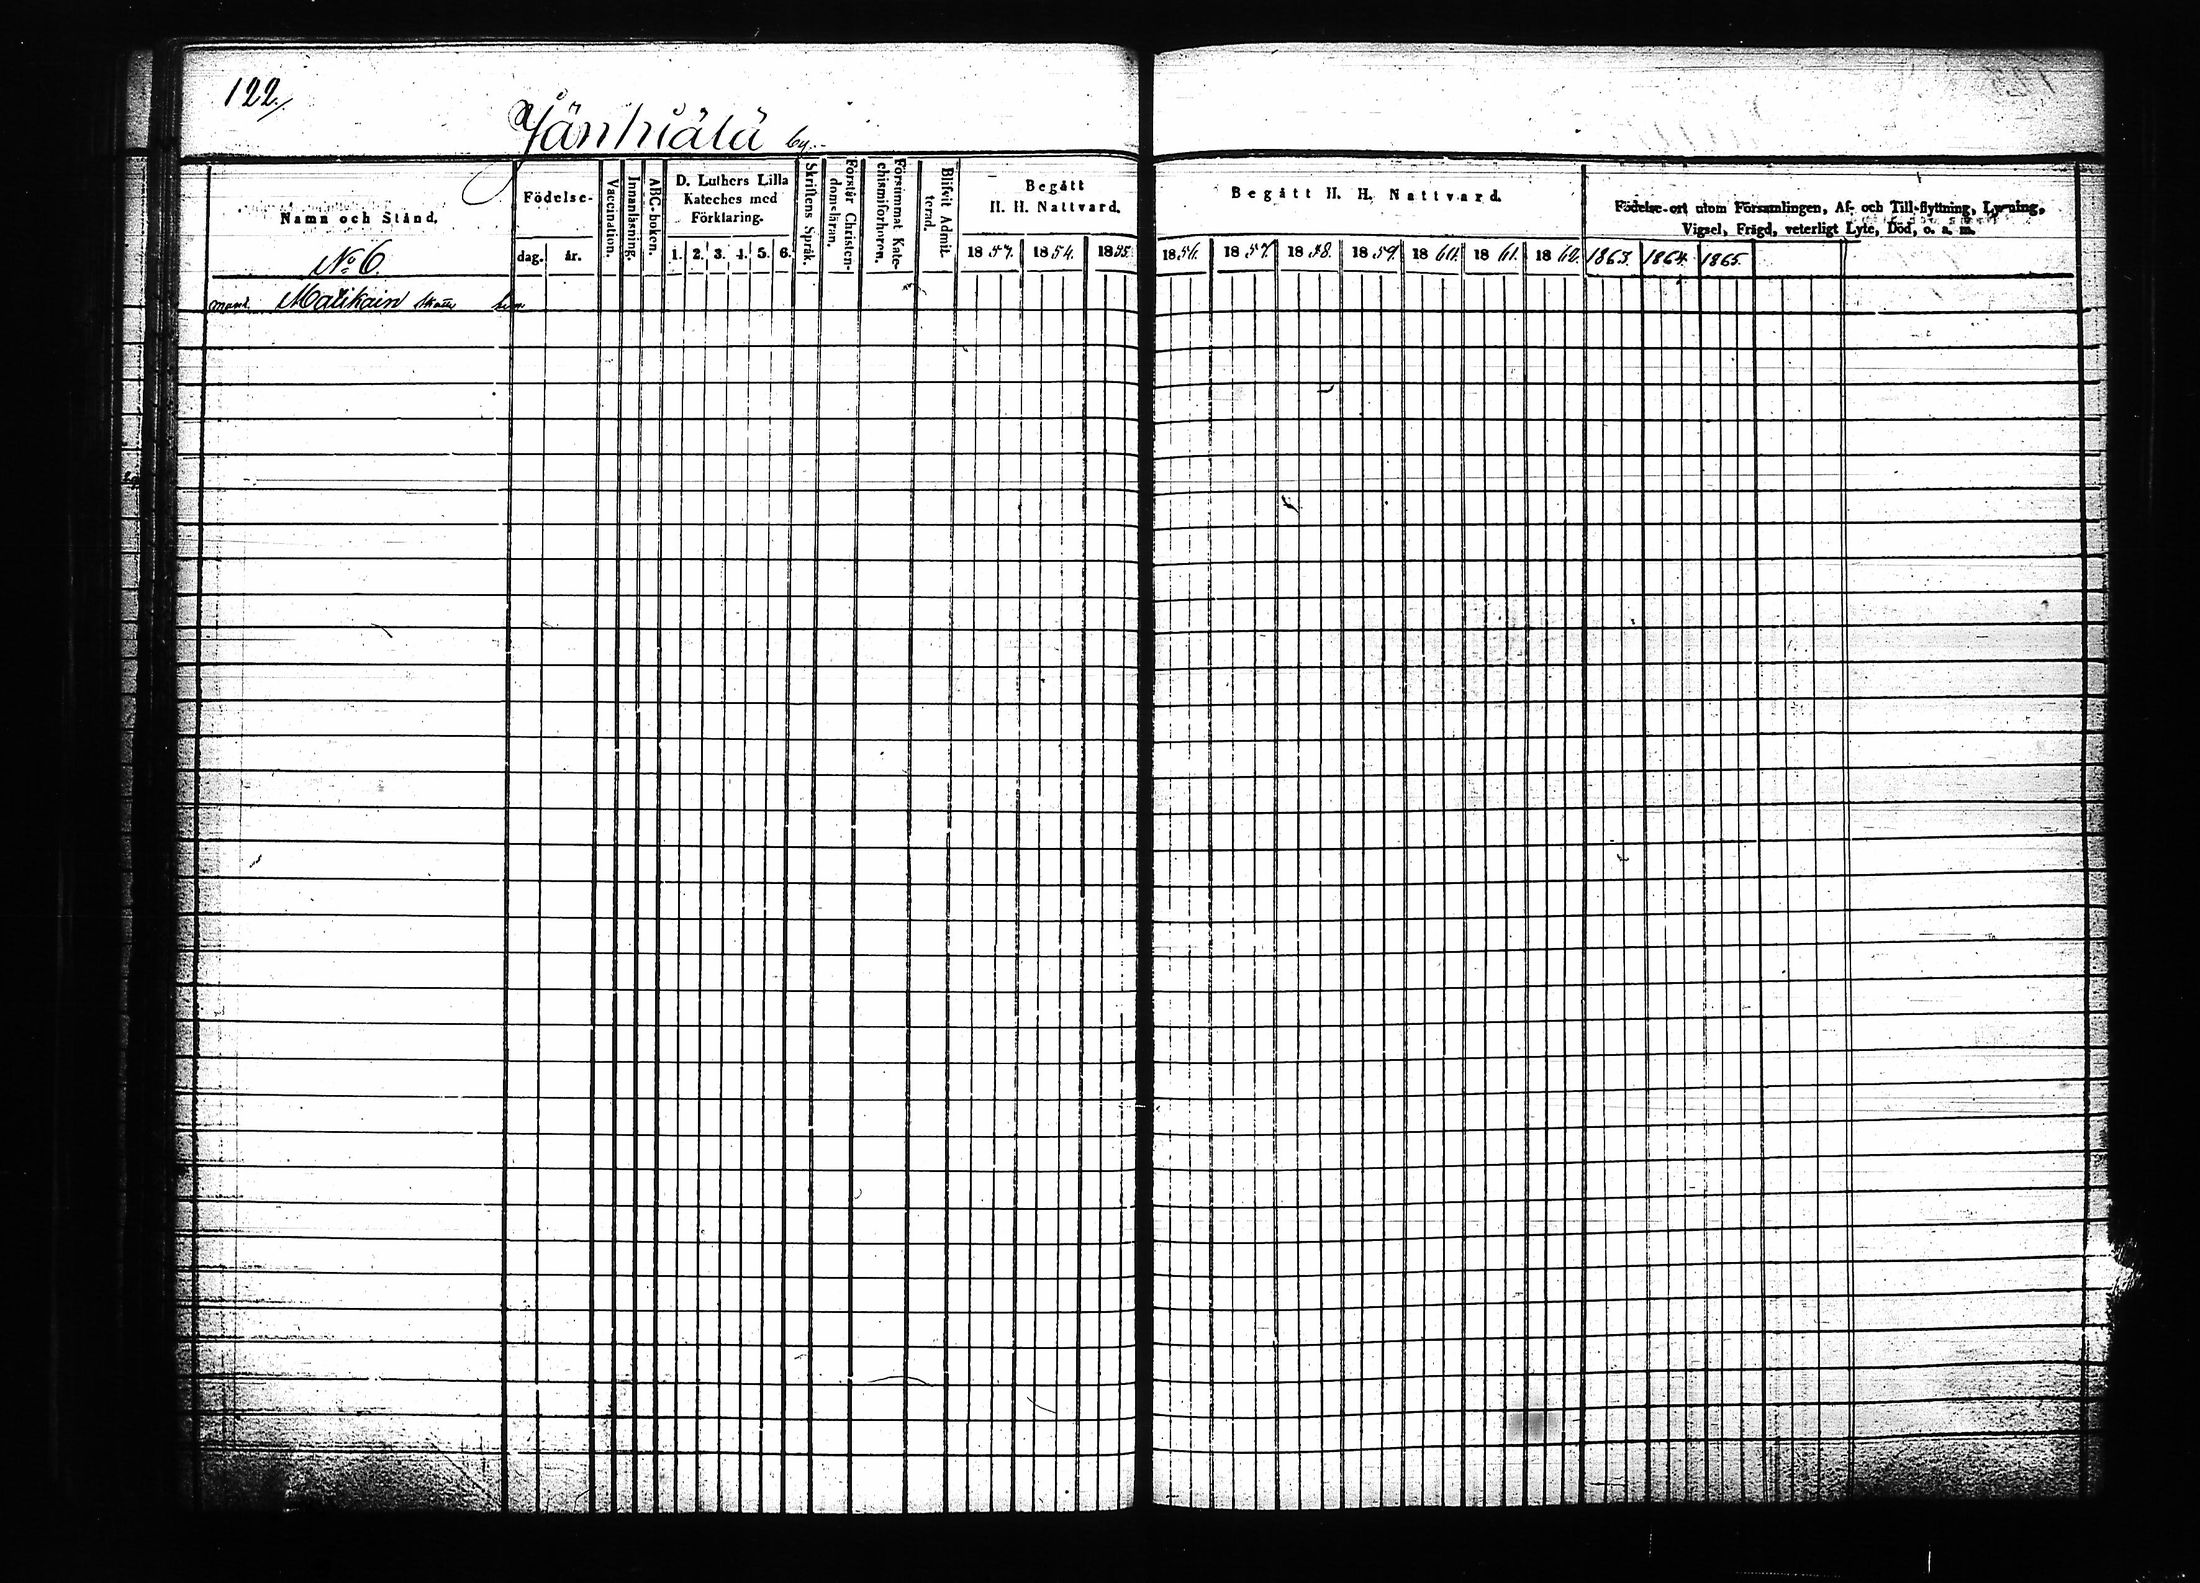 122.
Jänhiälä by.
Namn och Stånd.
Födelse-
dag. år.
Vaccenation.
Innanläsning.
ABC-boken.
D. Luthers Lilla
Kateches med
Förklaring.
1. 2. 3. 4. 5. 6.
Skriftens Språk.
Förstår Christen-
domsläran.
Försummat Kate-
chismiförhören.
Blifvit Admit-
terad.
Begått
H. H. Nattvard.
1854. 1855.
Begått H. H. Nattvard.
1856. 1857. 1858. 1859. 1860. 1861. 1862. 1863. 1864. 1865.
Födelse-ort utom Församlingen, Af- och Till-flyttning, Lysning,
Vigsel, Frägd, veterligt Lyte, Död, o. s. m.
No 6.
Matikain